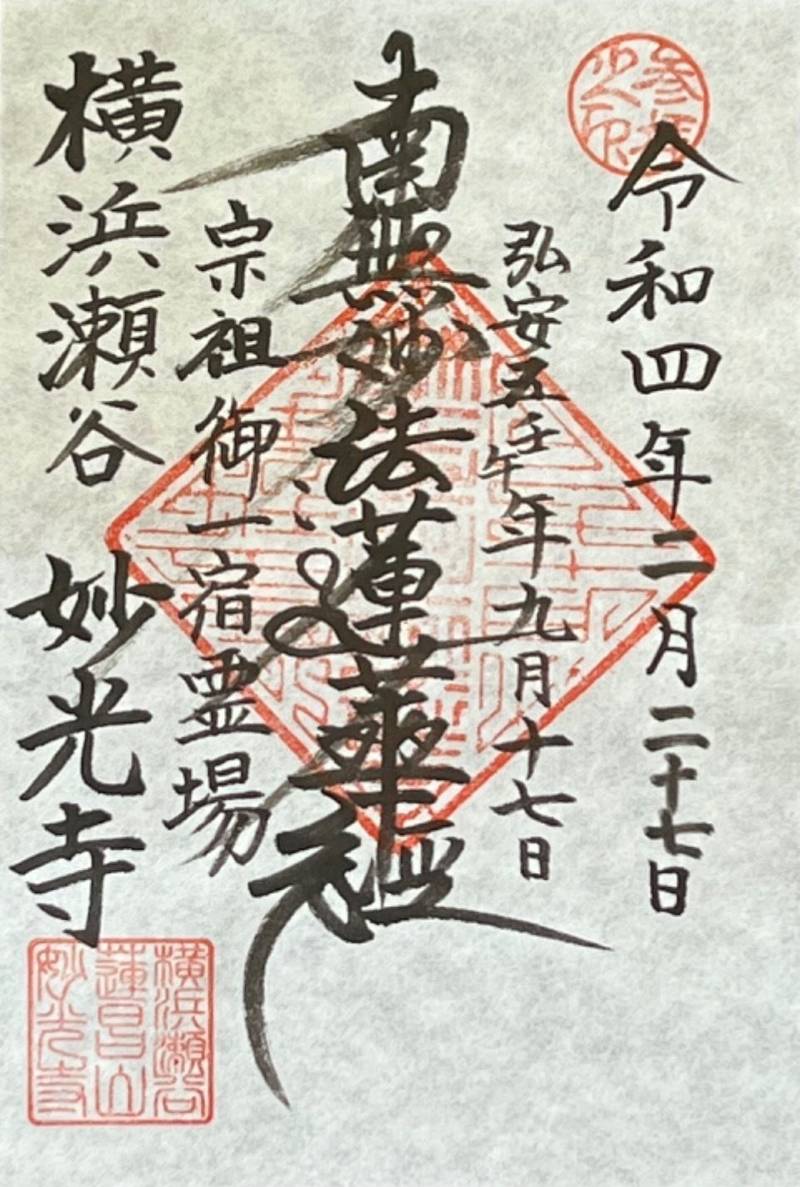 参拝之印
令和四年二月二十七日
弘安五壬午年九月十七日
南無妙法蓮華経
宗祖御一宿霊場
横浜瀬谷 妙光寺
横浜瀬谷
蓮昌山
妙光寺